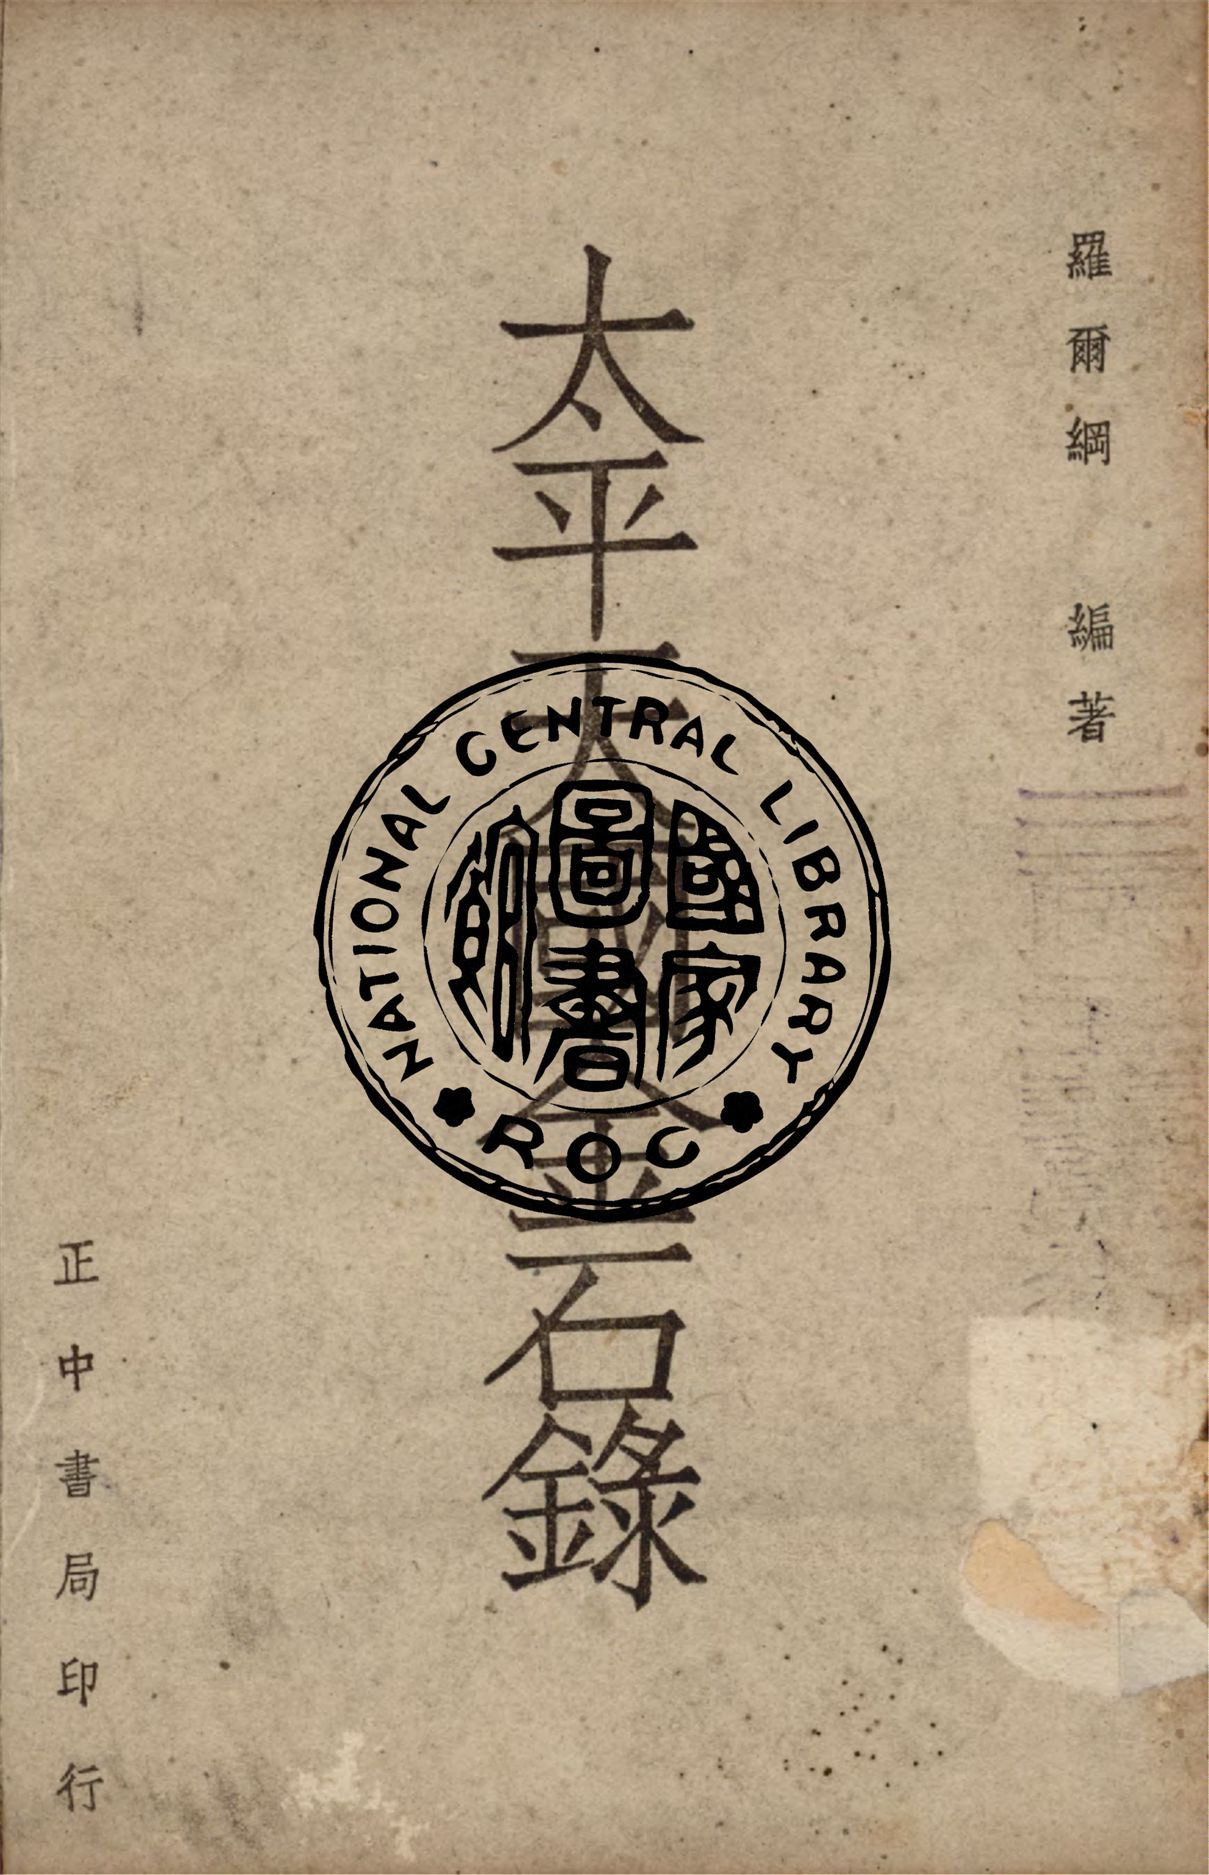 羅爾綱 編著
太平天國金石錄
正中書局印行
NATIONAL CENTRAL LIBRARY
國家圖書館
ROC